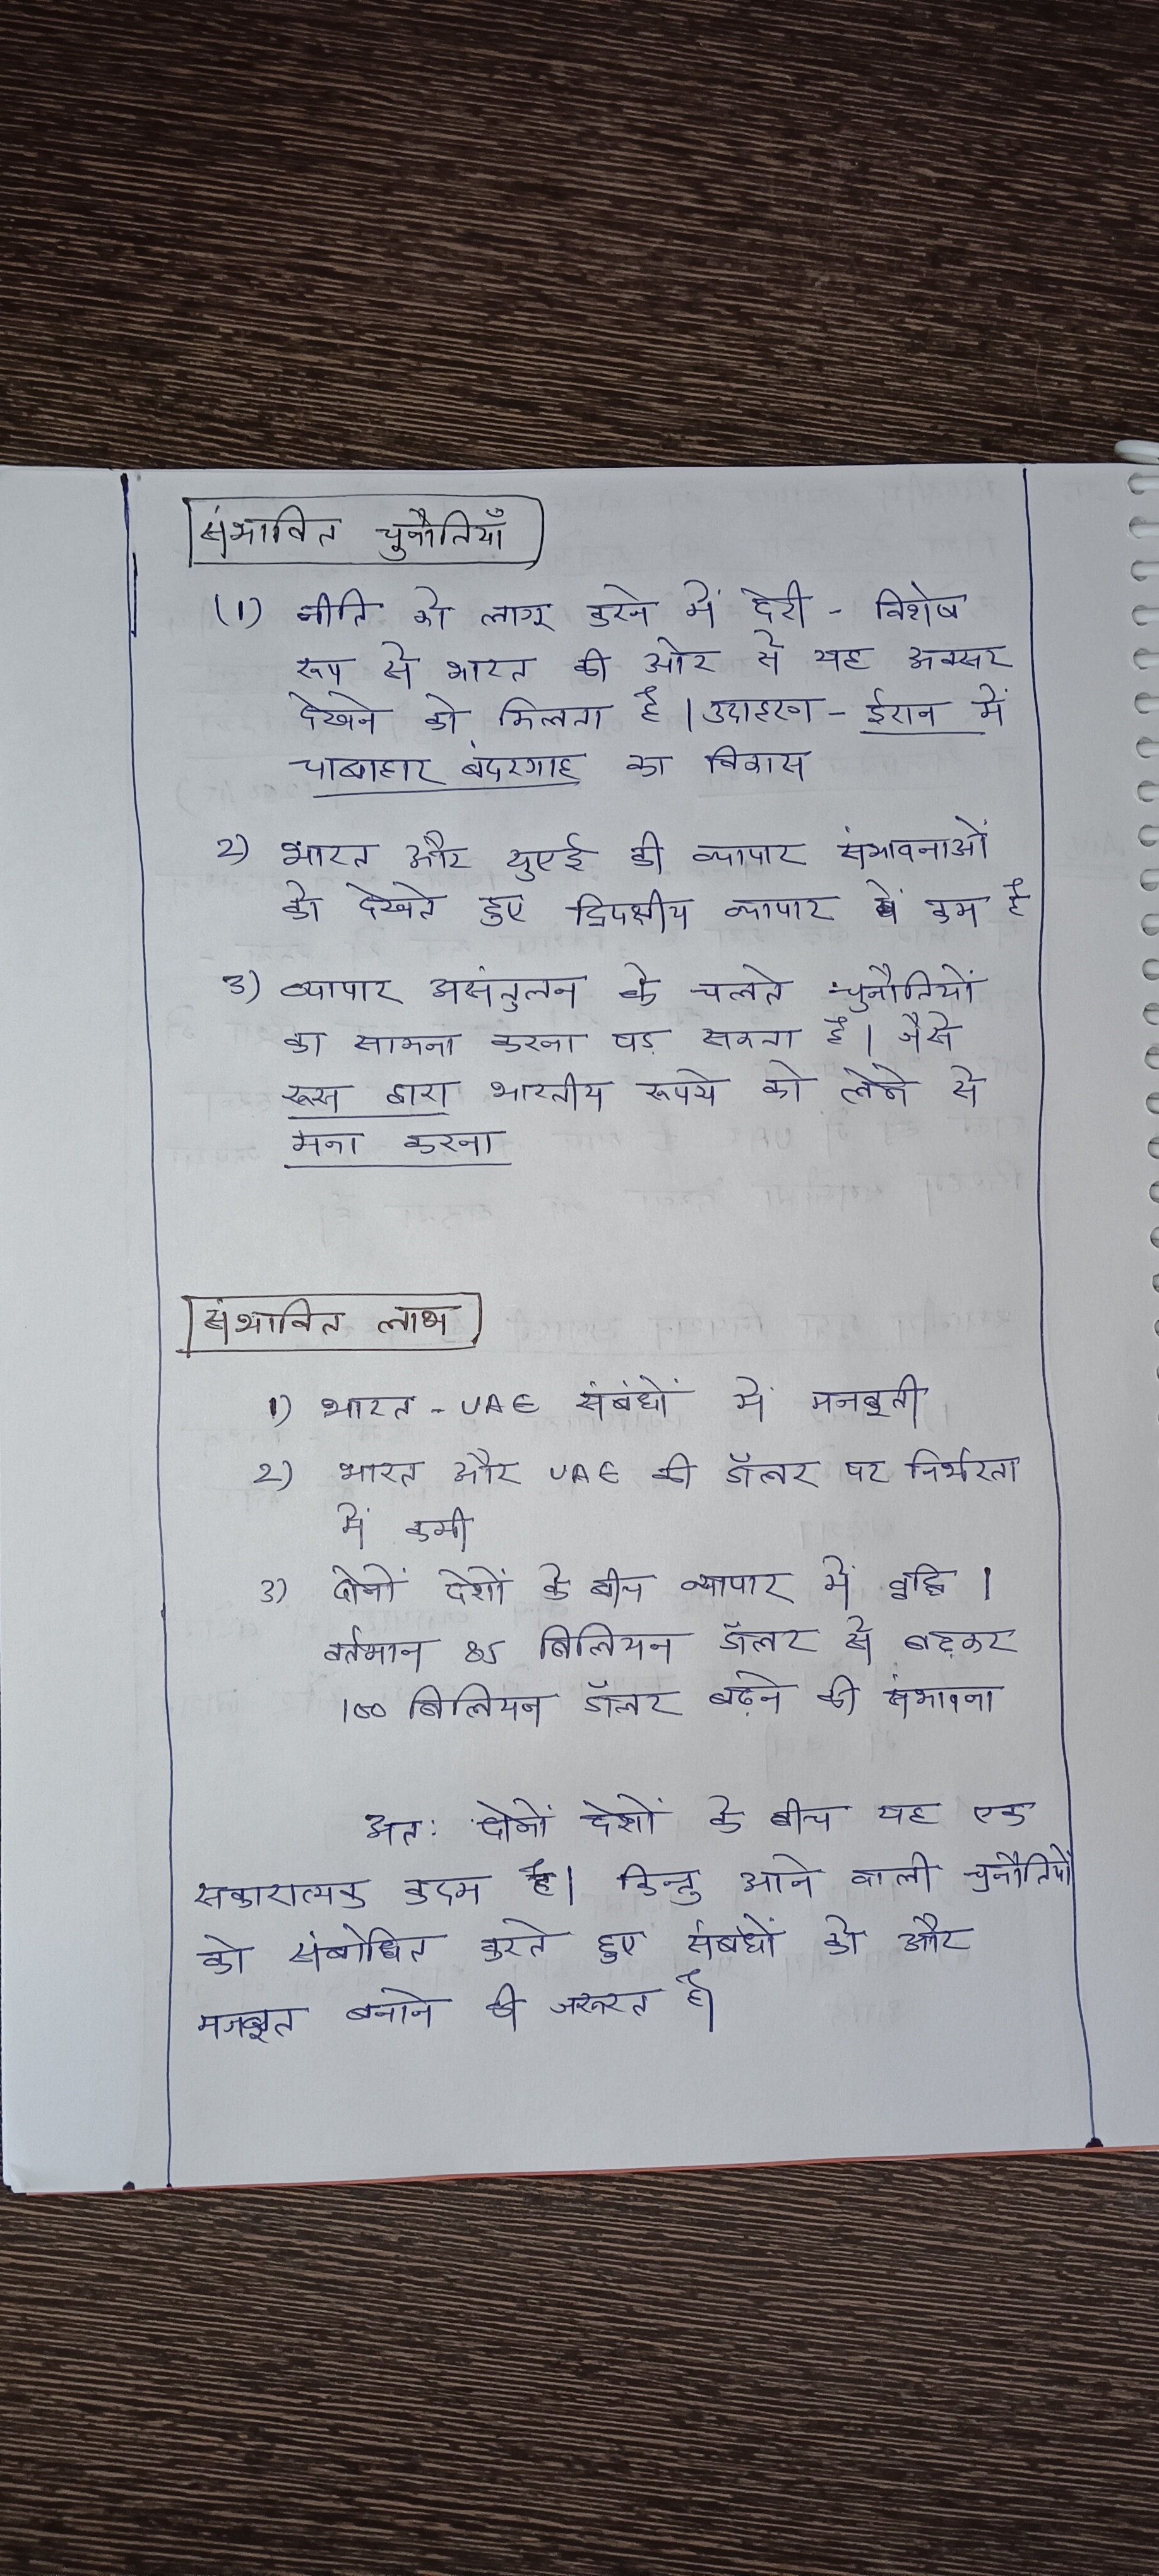 संभावित चुनौतियाँ
(1) नीति को लागू करने में देरी - विशेष
रूप से भारत की ओर से यह अक्सर
देखने को मिलता है। उदाहरण - ईरान में
चाबाहार बंदरगाह का विकास
2) भारत और युएई की व्यापार संभावनाओं
को देखते हुए द्विपक्षीय व्यापार कम है
3) व्यापार असंतुलन के चलते चुनौतियों
का सामना करना पड़ सकता है। जैसे
रूस द्वारा भारतीय रूपये को लेने से
मना करना
संभावित लाभ
1) भारत - UAE संबंधों में मजबूती
2) भारत और UAE की डॉलर पर निर्भरता
में कमी
3) दोनों देशों के बीच व्यापार में वृद्धि ।
वर्तमान 85 बिलियन डॉलर से बढ़कर
100 बिलियन डॉलर बढ़ने की संभावना
अतः दोनों देशों के बीच यह एक
सकारात्मक कदम है। किन्तु आने वाली चुनौतियों
को संबोधित करते हुए संबंधों को और
मजबूत बनाने की जरूरत है।